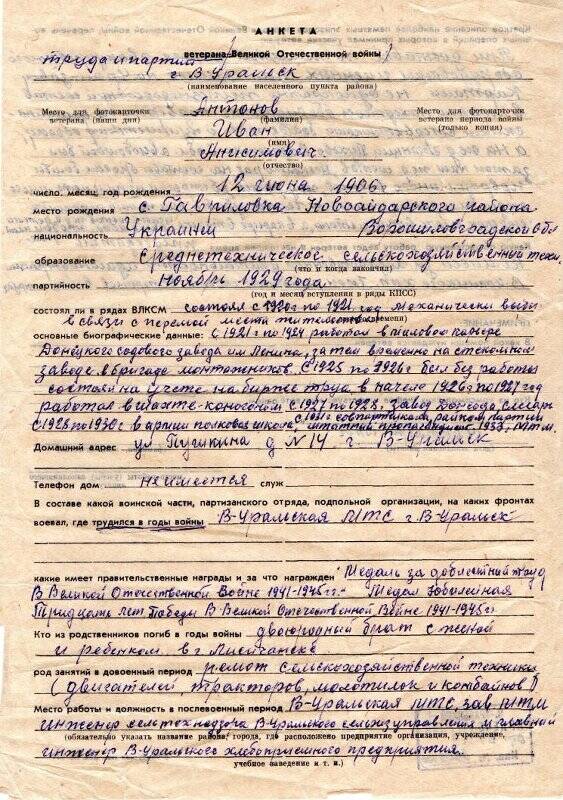 АНКЕТА
ветерана Великой Отечественной войны
труда и партии
г В-Уральск
(наименование населенного пункта района)
Место для фотокарточки ветерана (наши дни)
Антонов
(фамилия)
Иван
(имя)
Анисимович
(отчество)
Место для фотокарточки ветерана периода войны (только копия)
число, месяц, год рождения 12 июня 1906
место рождения с. Гавриловка Новоайдарского района
национальность Украинец Ворошиловградской обл
образование среднетехническое сельскохозяйственный техн.
(что и когда закончил)
партийность ноябрь 1929 года
(год и месяц вступления в ряды КПСС)
состоял ли в рядах ВЛКСМ состоял с 1920г по 1921 год Механически выбы
в связи с переменой места жительства
основные биографические данные: С 1921г по 1924 работал в
Донецкого содового завода им Ленина, затем временно на стекольном
заводе в бригаде монтажников. С 1925 по 1926г был без работы
состоял на учете на бирже труда, в начале 1926г по 1927 год
работал в шахте-коногоном с 1927 по 1928. завод Донсода слесарь
с 1928 по 1930г в армии полковая школа, с 1931г совпартшкола, райком партии
штатный пропагандист 1933, МТМ.
Домашний адрес ул Пушкина д №14 г. В-Уральск
Телефон дом не имеется служ
В составе какой воинской части, партизанского отряда, подпольной организации, на каких фронтах
воевал, где трудился в годы войны В-Уральская МТС г. В-Уральск
какие имеет правительственные награды и за что награжден "Медаль за доблестный труд
В Великой Отечественной Войне 1941-1945гг" "Медаль Юбилейная
Тридцать лет Победы В Великой Отечественной Войне 1941-1945гг
Кто из родственников погиб в годы войны двоюродный брат с женой
и ребенком, в г Лисичанске
род занятий в довоенный период ремонт сельскохозяйственной техники
(двигателей тракторов, молотилок и комбайнов)
Место работы и должность в послевоенный период В-Уральская МТС, зав МТМ
инженер сельтехнадзора В-Уральского сельхозуправления и главный
(обязательно указать название района, города, где расположено предприятие организация, учреждение,
инженер В-Уральского хлебоприемного предприятия
учебное заведение и т. п.)